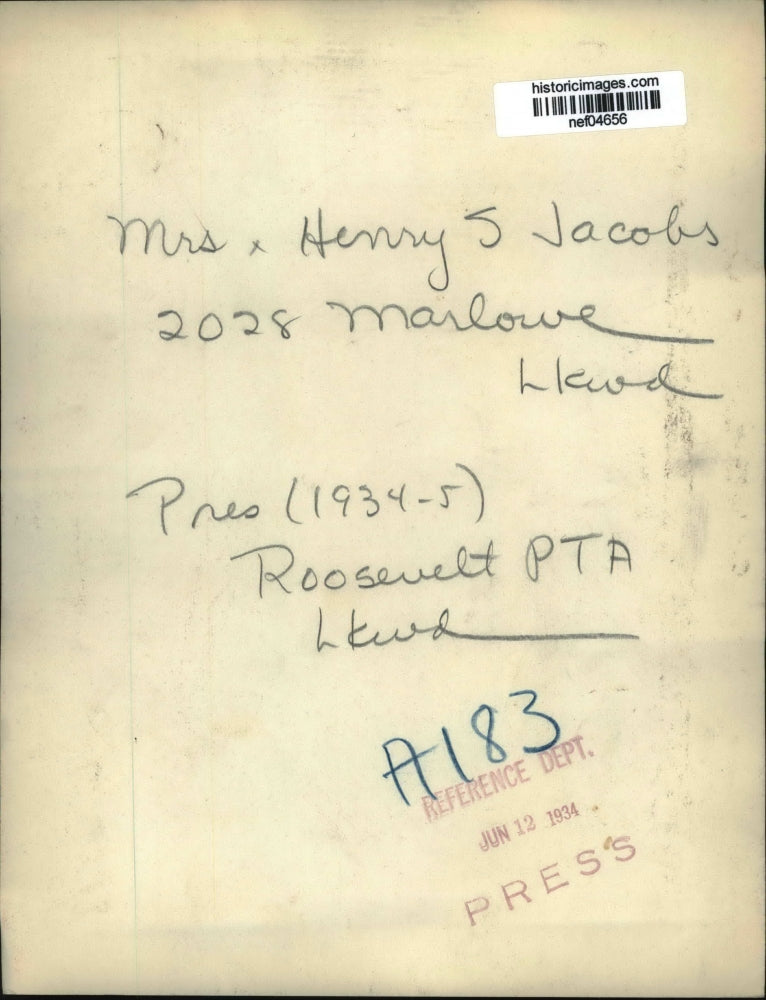 historicimages.com
nef04656
Mrs. Henry S Jacobs
2028 Marlowe
Lkwd
Pres (1934-5)
Roosevelt PTA
Lkwd
A183
REFERENCE DEPT.
JUN 12 1934
PRESS